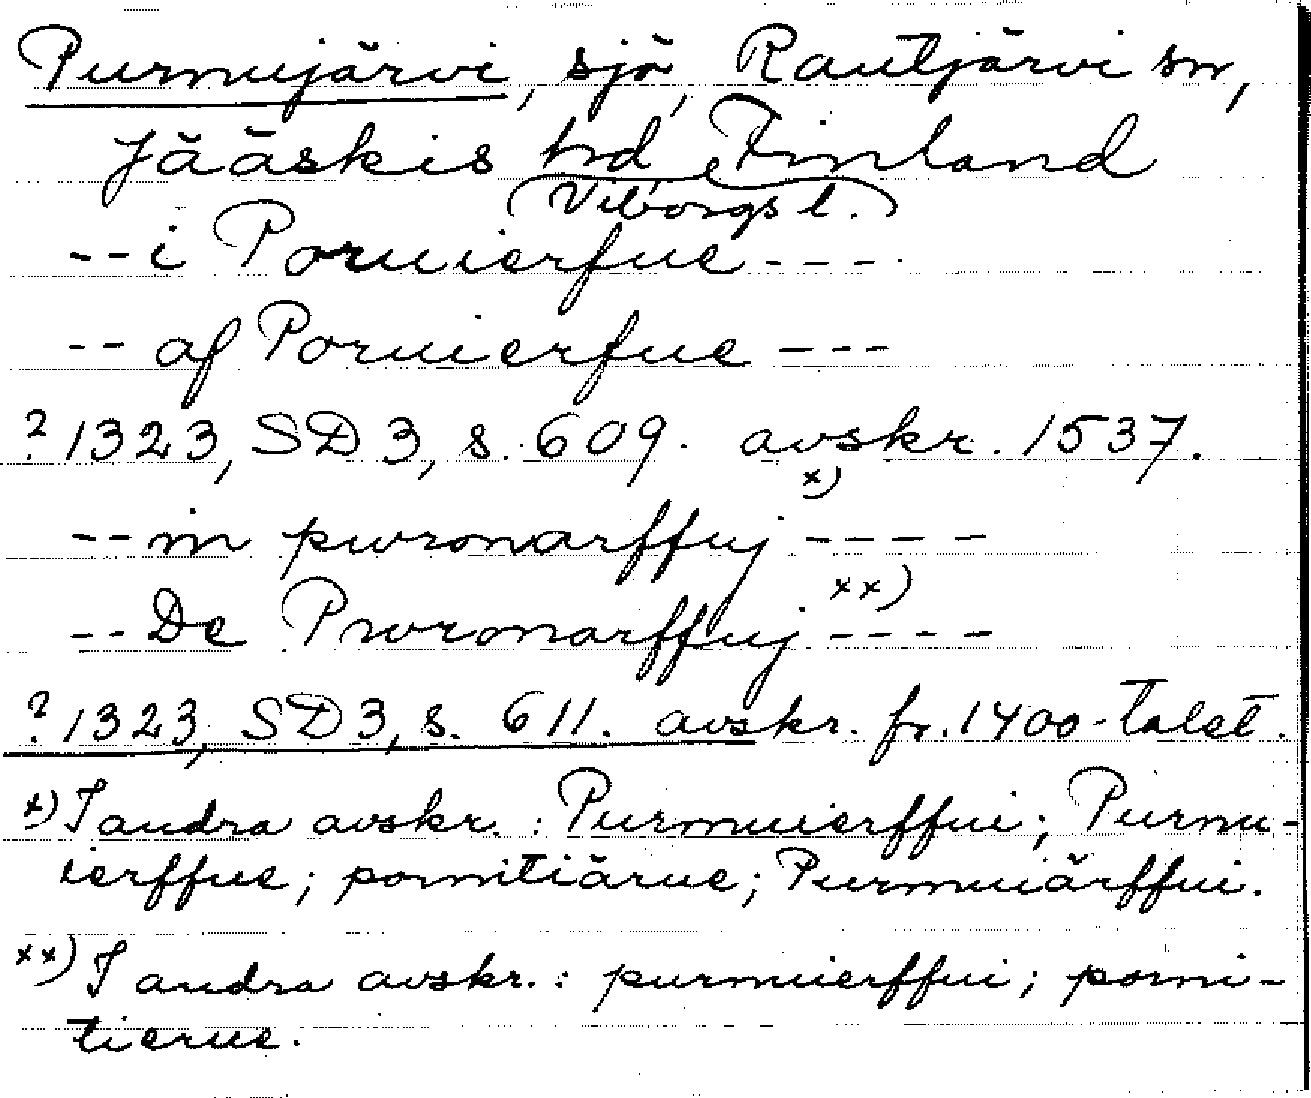 Purnujärvi, sjö, Rautjärvi sn,
Jääskis hd, Finland
(Viborgs l.)
--i Poruierfue----
--af Poruierfue---
? 1323, SD 3, s. 609. avskr. 1537.
--in pwronarffuj x) ----
--De Pwronarffuj xx) ----
? 1323, SD 3, s. 611. avskr. fr. 1400-talet.
x) I andra avskr.: Purmuierffui; Purnu-
ierffue; pormitiärue; Purmuiärffui.
xx) I andra avskr.: purmuierffui; pormi-
tierue.